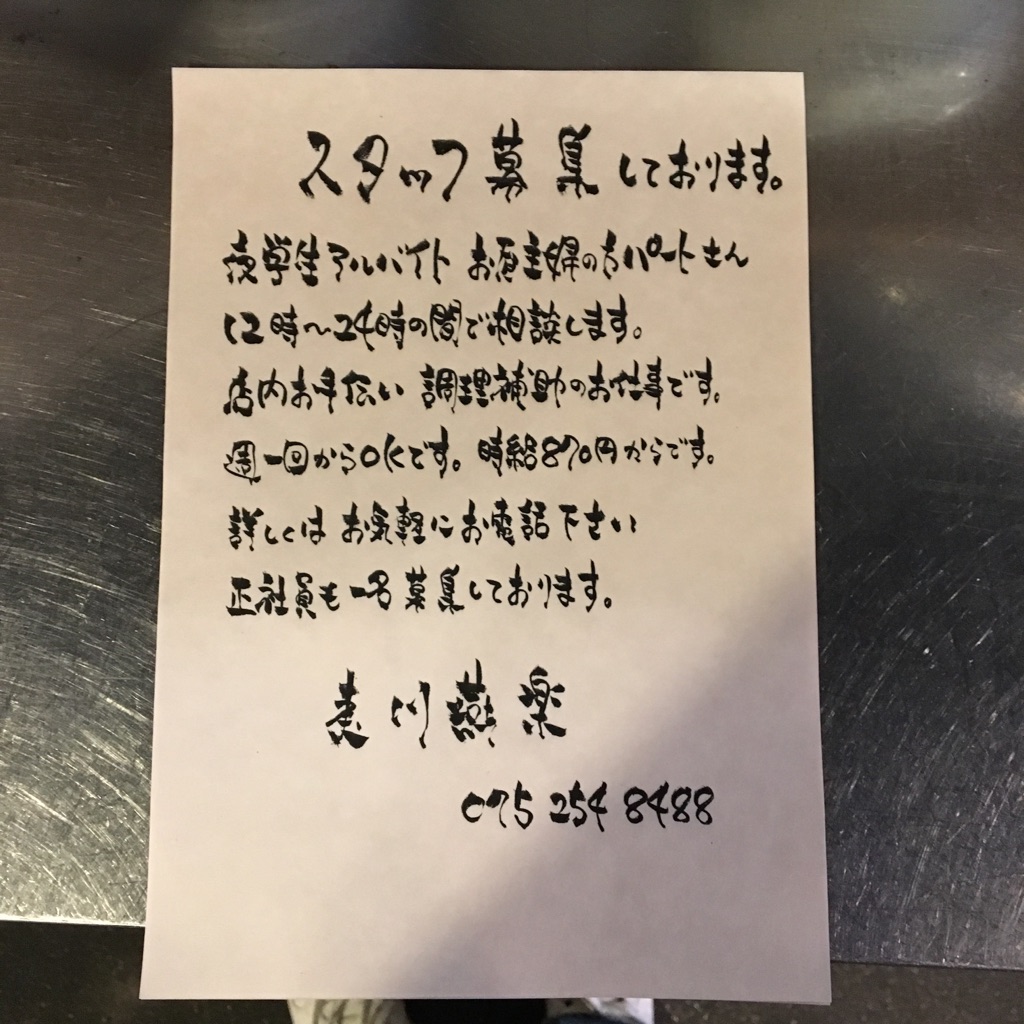 スタッフ募集しております。
学生アルバイト お昼主婦の方パートさん
12時～24時の間で相談します。
店内お手伝い 調理補助のお仕事です。
週一回からOKです。時給870円からです。
詳しくは お気軽にお電話下さい
正社員も一名募集しております。
075 254 8488